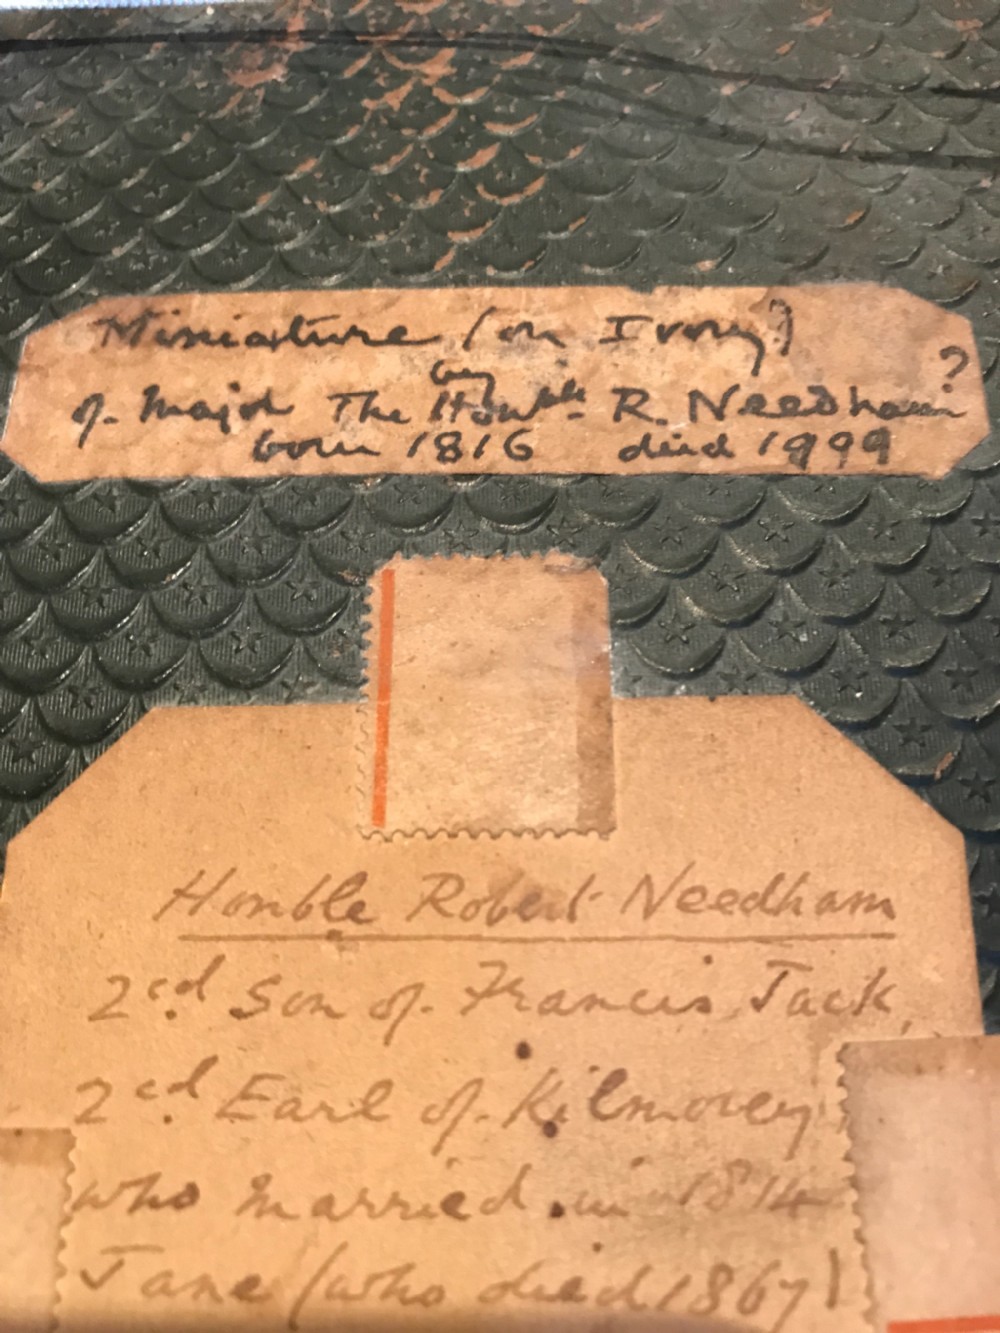 Miniature (on Ivory?)
by
of Major The Honble. R. Needham ?
born 1816 died 1999
Honble Robert Needham
2cd Son of Francis Jack,
2cd Earl of Kilmorey
who married in 1814
Jane (who died 1867)